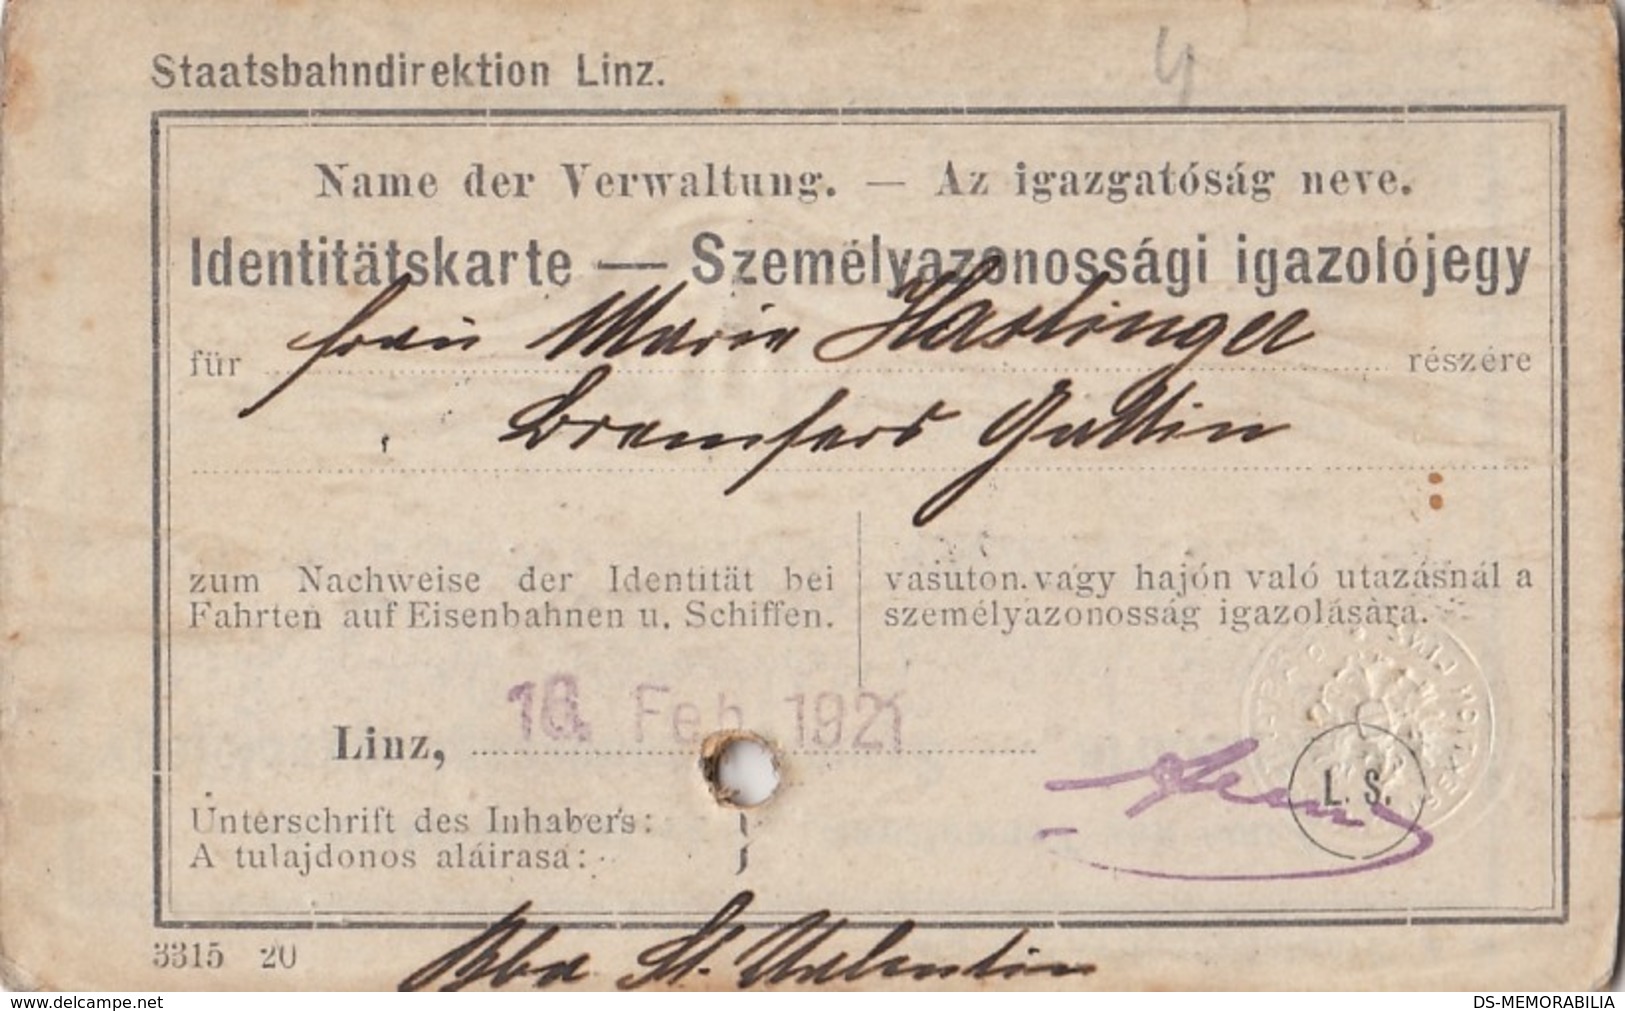 Staatsbahndirektion Linz.
Name der Verwaltung. — Az igazgatóság neve.
Identitätskarte — Személyazonossági igazolójegy
für Frau Marie Haslinger részére
Gattin
zum Nachweise der Identität bei
Fahrten auf Eisenbahnen u. Schiffen.
vasuton vagy hajón való utazásnál a
személyazonosság igazolására.
Linz, 16. Feb. 1921
L. S.
Unterschrift des Inhabers:
A tulajdonos aláirasa:
3315 20
St. Valentin
www.delcampe.net
DS-MEMORABILIA